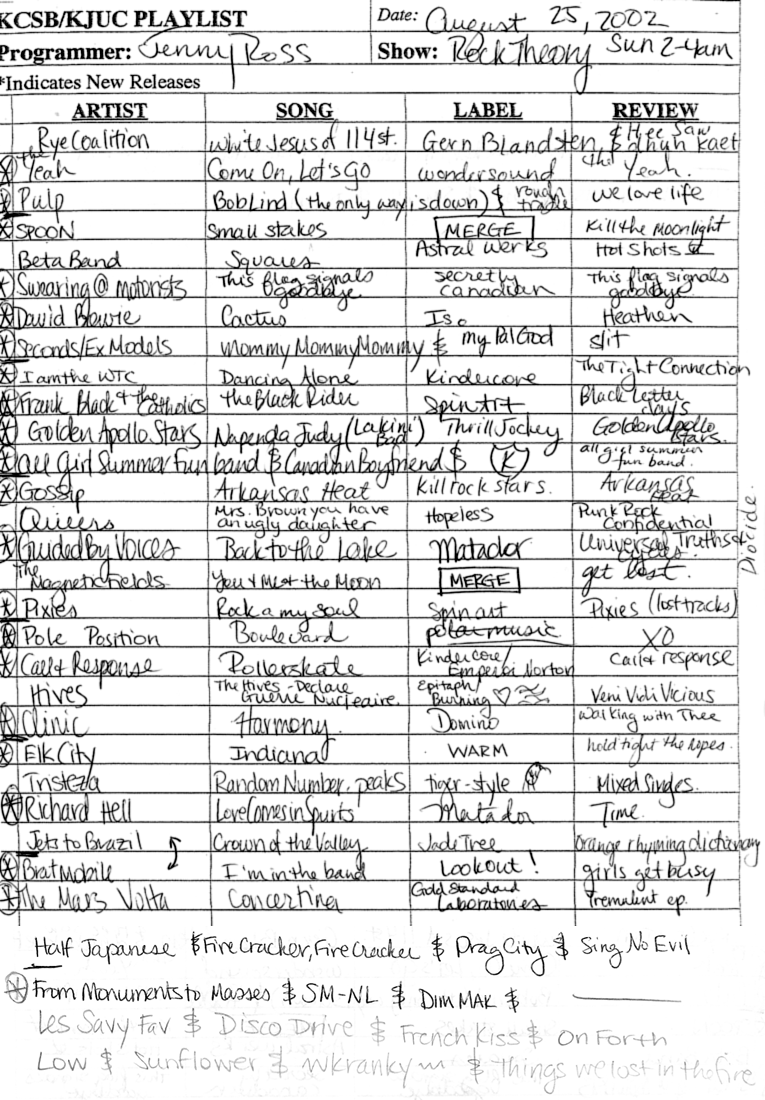 KCSB/KJUC PLAYLIST Date: August 25, 2002
Programmer: Jenny Ross Show: Rock Theory Sun 2-4am
*Indicates New Releases
ARTIST SONG LABEL REVIEW
Rye Coalition White Jesus of 114st. Gern Blandsten, & Hee Saw dhuh Kaet
* the Yeah Come On, Let's Go wondersound (the) Yeah.
* Pulp Bob Lind (the only way is down) & rough trade we love life
* SPOON Small stakes MERGE Kill the Moonlight
Beta Band Squares Astral werks Hot Shots II
* Swearing @ motorists This flag signals goodbye secretly canadian This flag signals goodbye
* David Bowie Cactus Iso Heathen
* Seconds/Ex Models Mommy Mommy Mommy & my Pal God slit
* I am the WTC Dancing Alone Kindercore The Tight Connection
* Frank Black & the Catholics the Black Rider Spin Art Black Letter Days
* Golden Apollo Stars Napenda Judy (Lakini Bad) Thrill Jockey Golden Apollo Stars.
* All Girl Summer Fun band & Canadian Boyfriend & K all girl summer fun band.
* Gossip Arkansas Heat Kill rock stars. Arkansas Heat
Queers Mrs. Brown you have an ugly daughter Hopeless Punk Rock Confidential
* Guided By Voices Back to the Lake Matador Universal Truths & Cycles
The Magnetic Fields You & Me & the Moon MERGE get lost.
* Pixies Rock a my soul Spin art Pixies (lost tracks)
* Pole Position Boulevard polar music XO
* Call & Response Rollerskate Kindercore/ Emperor Norton Call & response
Hives The Hives - Declare Guerre Nucleaire. Epitaph/ Burning ♡ Veni Vidi Vicious
* Clinic Harmony Domino Walking with Thee
* Elk City Indiana WARM hold tight the ropes.
Tristeza Random Number. peaks tiger-style Mixed Singles.
* Richard Hell Love Comes in Spurts Matador Time.
Jets to Brazil Crown of the Valley Jade Tree Orange rhyming dictionary
* Bratmobile I'm in the band Lookout! girls get busy
* The Mars Volta Concertina Gold Standard Laboratories Tremulent ep.
Half Japanese & Fire Cracker, Fire Cracker & Drag City & Sing No Evil
* From Monuments to Masses & SM-NL & DIM MAK & ______
Les Savy Fav & Disco Drive & French Kiss & On Forth
Low & Sunflower & Wkranky & things we lost in the fire